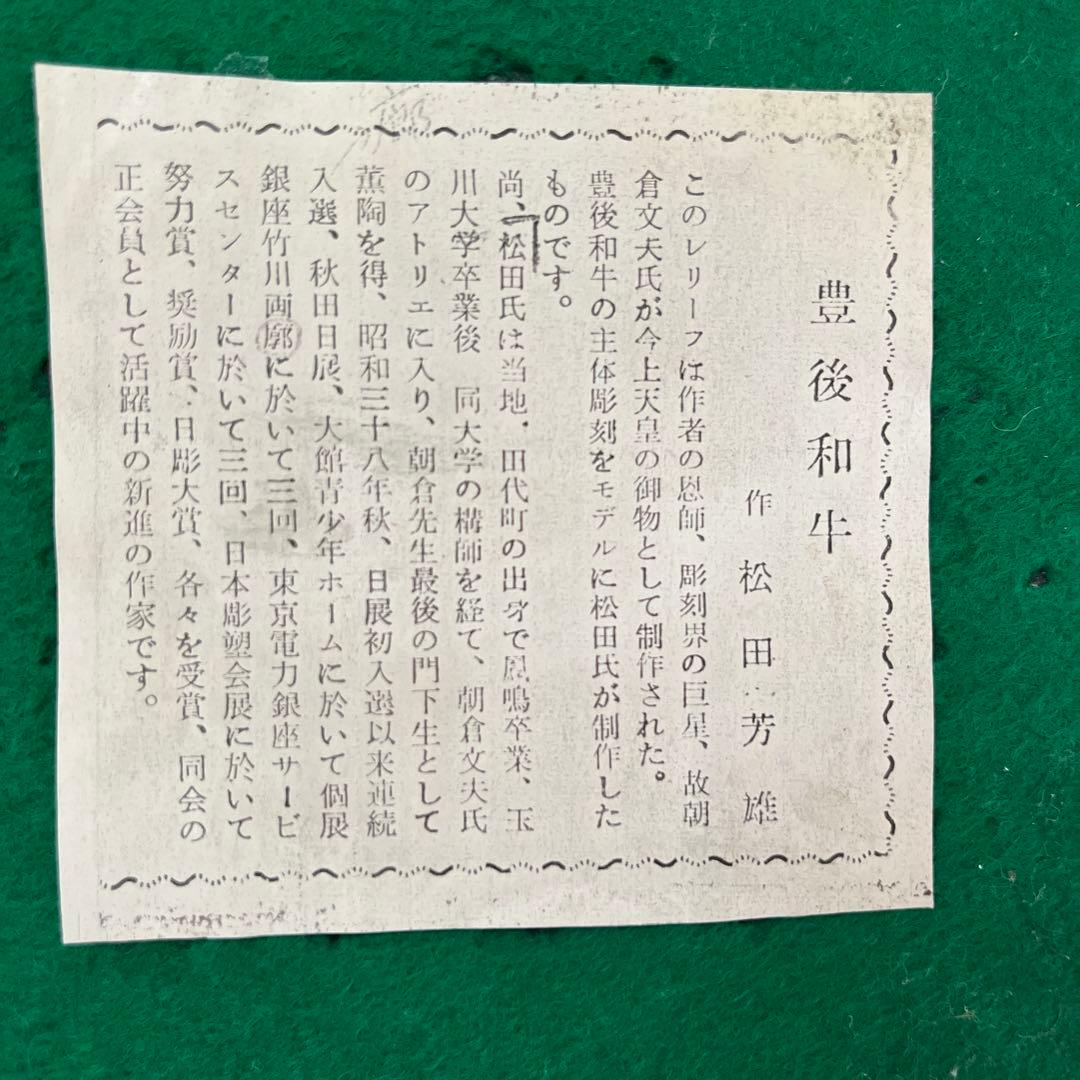 豊後和牛
作 松田芳雄
このレリーフは作者の恩師、彫刻界の巨星、故朝
倉文夫氏が今上天皇の御物として制作された。
豊後和牛の主体彫刻をモデルに松田氏が制作した
ものです。
尚、松田氏は当地.田代町の出身で鳳鳴卒業、玉
川大学卒業後 同大学の構師を経て、朝倉文夫氏
のアトリエに入り、朝倉先生最後の門下生として
薫陶を得、昭和三十八年秋、日展初入選以来連続
入選、秋田日展、大館青少年ホームに於いて個展
銀座竹川画廓に於いて三回、東京電力銀座サービ
スセンターに於いて三回、日本彫塑会展に於いて
努力賞、奨励賞、日彫大賞、各々を受賞、同会の
正会員として活躍中の新進の作家です。